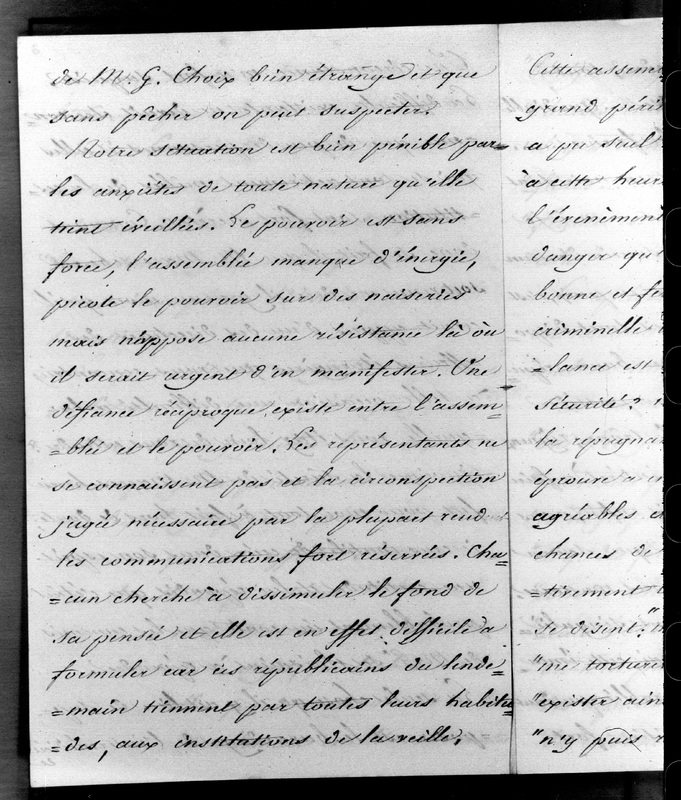 de M. G. Choix bien étrange et que
sans pêcher on peut suspecter.
Notre situation est bien pénible par
les anxiétés de toute nature qu'elle
tient éveillés. Le pouvoir est sans
force, l'assemblée manque d'énergie,
picote le pouvoir sur des naiseries
mais n'oppose aucune résistance là où
il serait urgent d'en manifester. Une
défiance réciproque existe entre l'assem-
=blée et le pouvoir. Les représentants ne
se connaissent pas et la circonspection
jugée nécessaire par la plupart rend
les communications fort réservées. Cha=
=cun cherche à dissimuler le fond de
sa pensée et elle est en effet difficile a
formuler car ces républicains du lende=
=main tiennent par toutes leurs habitu=
=des, aux institutions de la veille.
Cette assem
grand péri
a pu seul
à cette heur
l'évènement
danger qu'
bonne et fe
criminelle
=lance est
sécurité?
la répugnan
éprouve a
agréables
chances de
=tirement
se disent: "
"me torture
"exister ain
"n'y puis